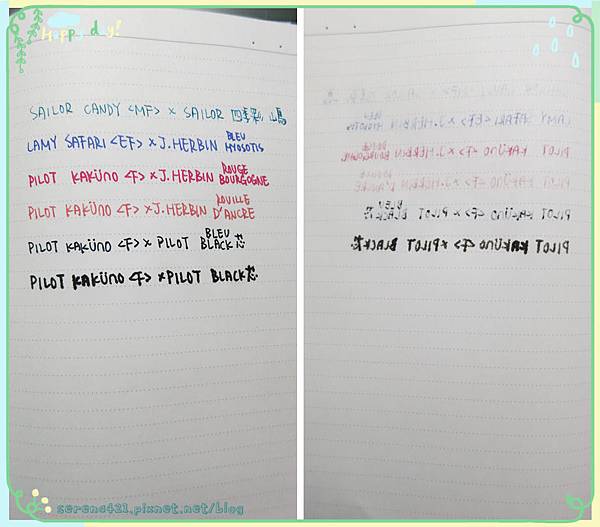 Happy day!
SAILOR CANDY <MF> × SAILOR 四季彩 山鳥
LAMY SAFARI <EF> × J.HERBIN BLEU MYOSOTIS
PILOT KAKÜNO <F> × J.HERBIN ROUGE BOURGOGNE
PILOT KAKÜNO <F> × J.HERBIN ROUILLE D'ANCRE
PILOT KAKÜNO <F> × PILOT BLEU BLACK芯
PILOT KAKÜNO <F> × PILOT BLACK芯
serena421.pixnet.net/blog